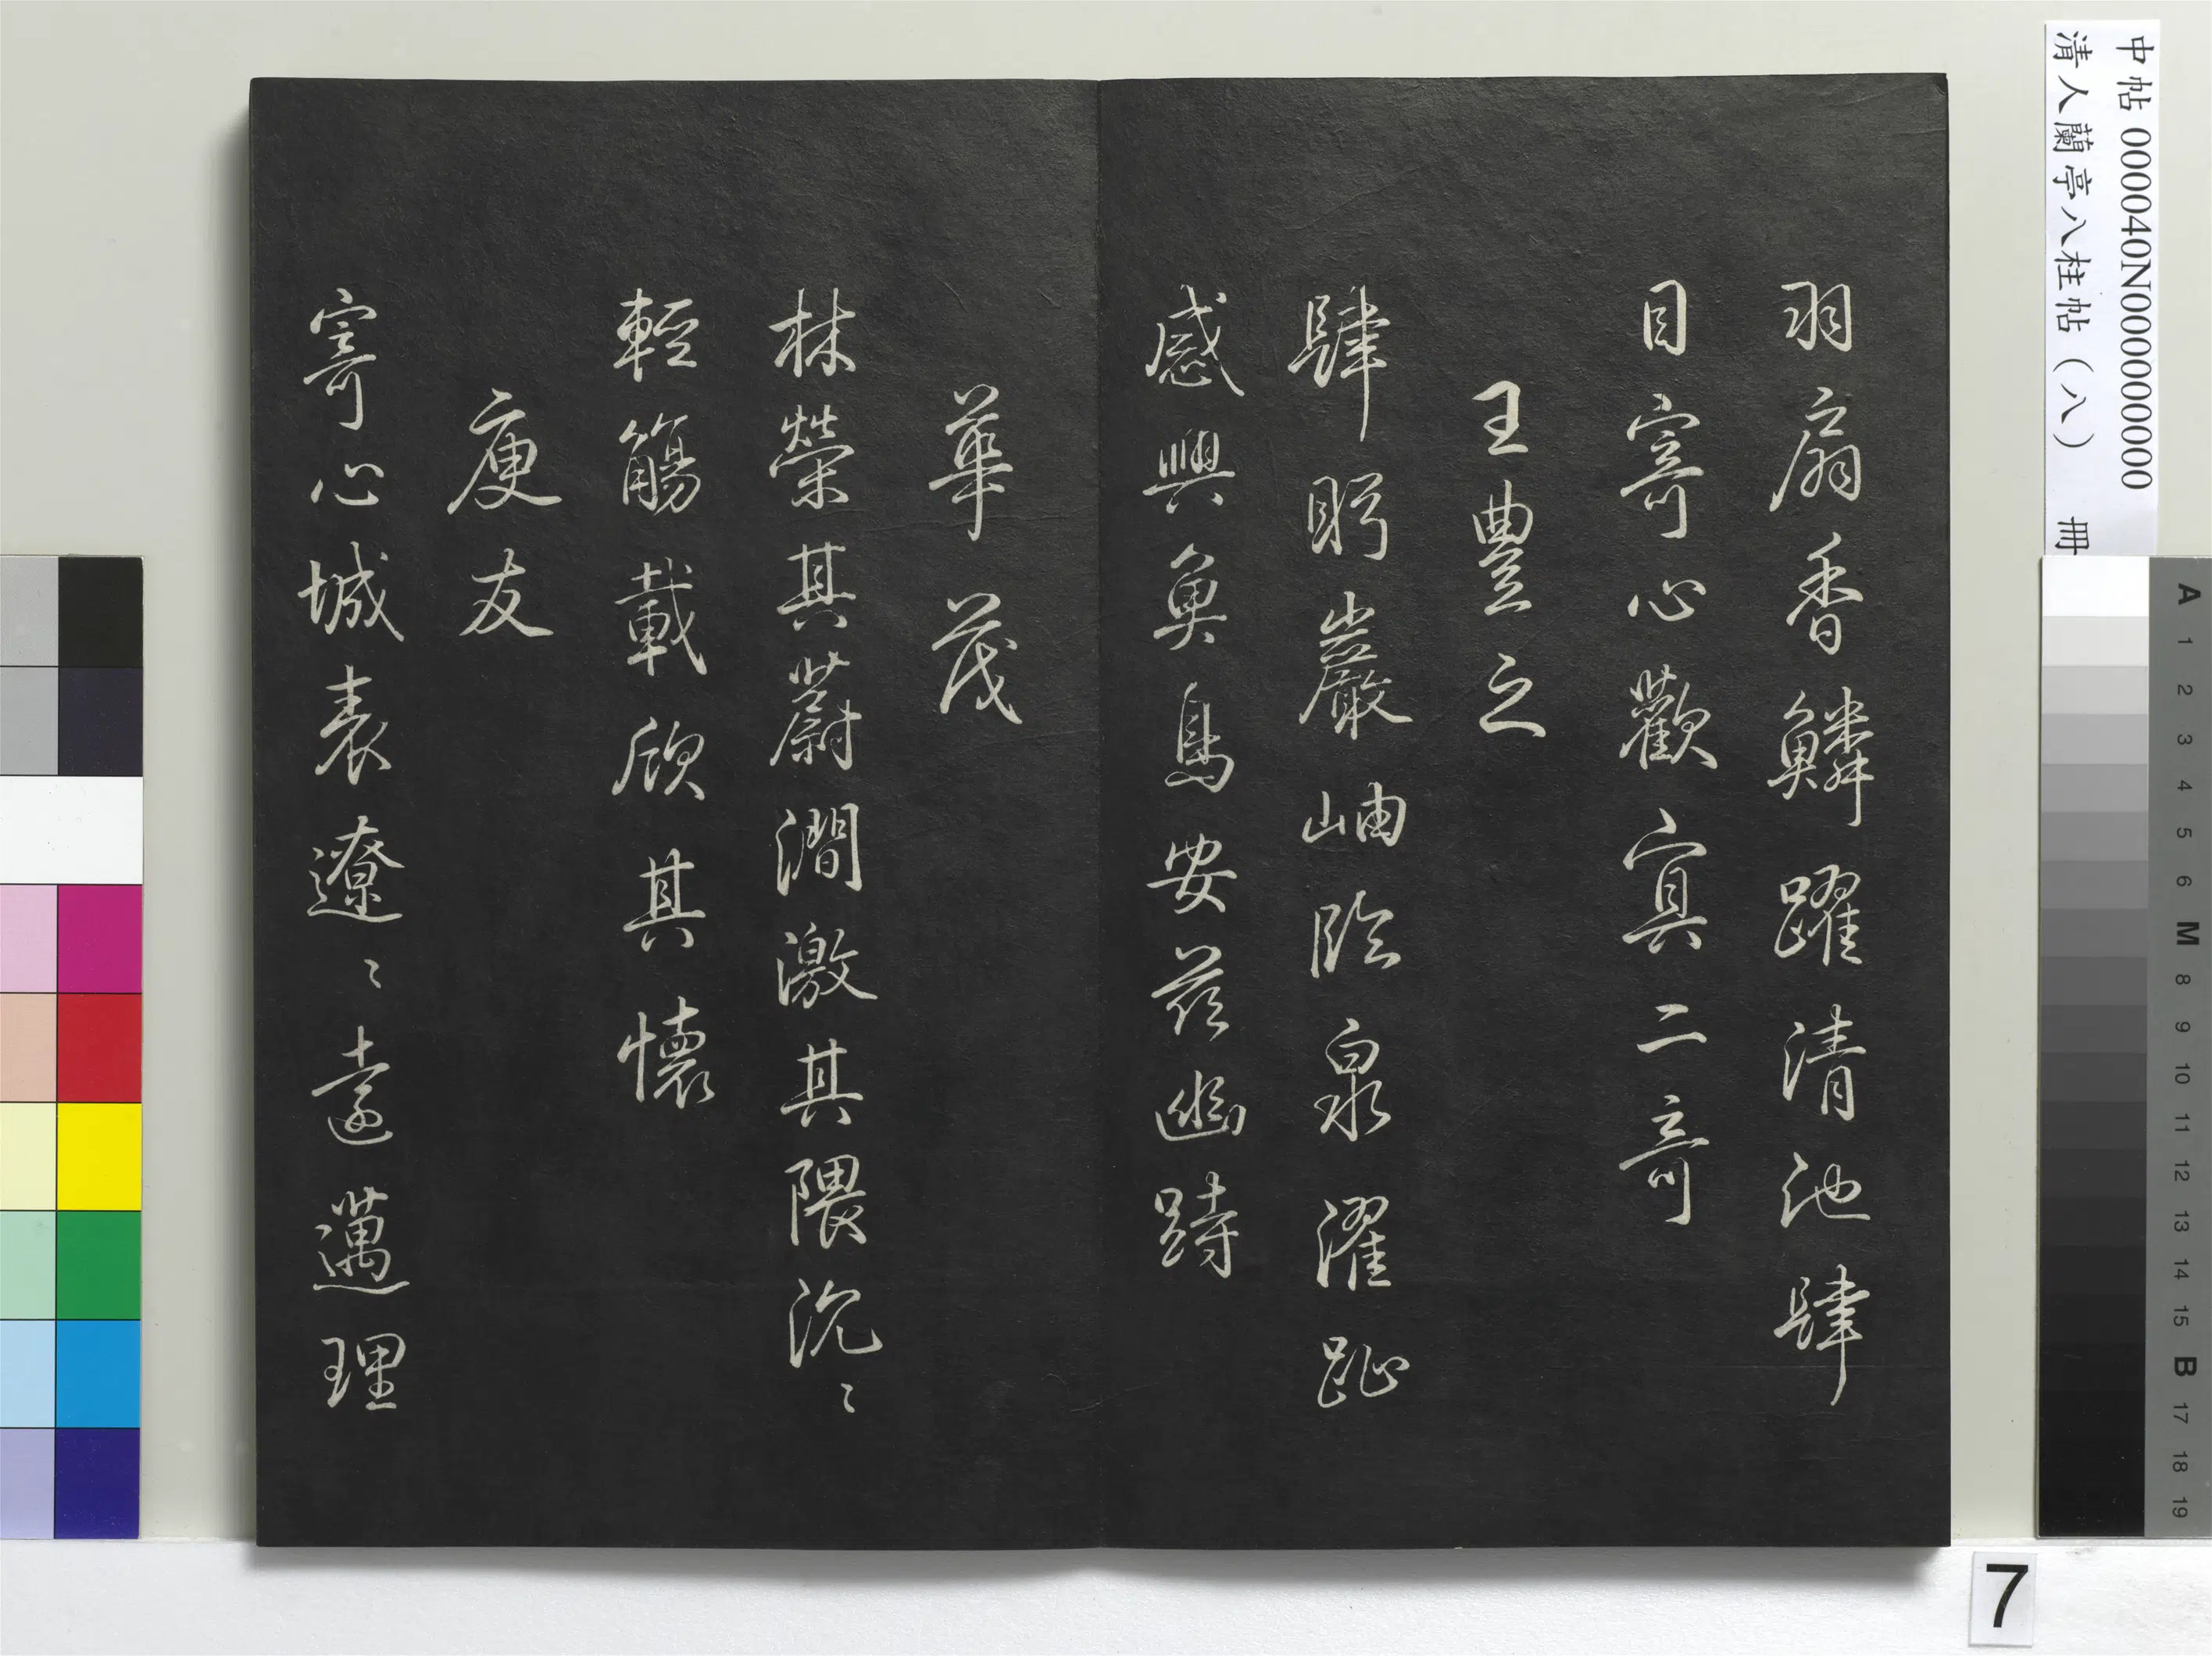 羽扇香鱗躍清池肆
目寄心歡冥二奇
王豊之
肆眄巖岫臨泉濯趾
感興魚鳥安茲幽跱
華茂
林榮其蔚澗激其隈汎〻
輕觴載欣其懷
庾友
寄心城表遼〻遠邁理
中帖 000040N000000000
清人蘭亭八柱帖(八) 冊
A 1 2 3 4 5 6 M 8 9 10 11 12 13 14 15 B 17 18 19
7